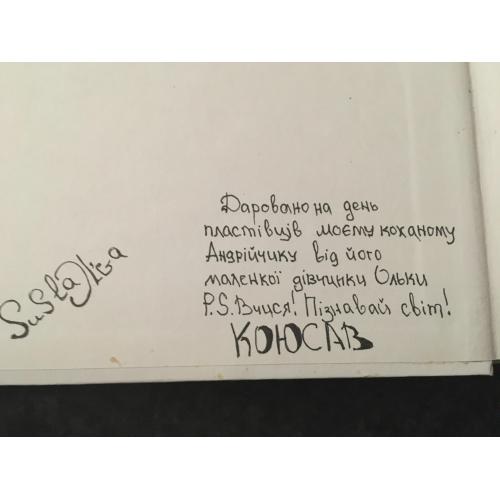 Даровано на день
пластівців моєму коханому
Андрійчику від його
маленкої дівчинки Ольки
P.S. Вчися! Пізнавай світ!
КОЮСАВ